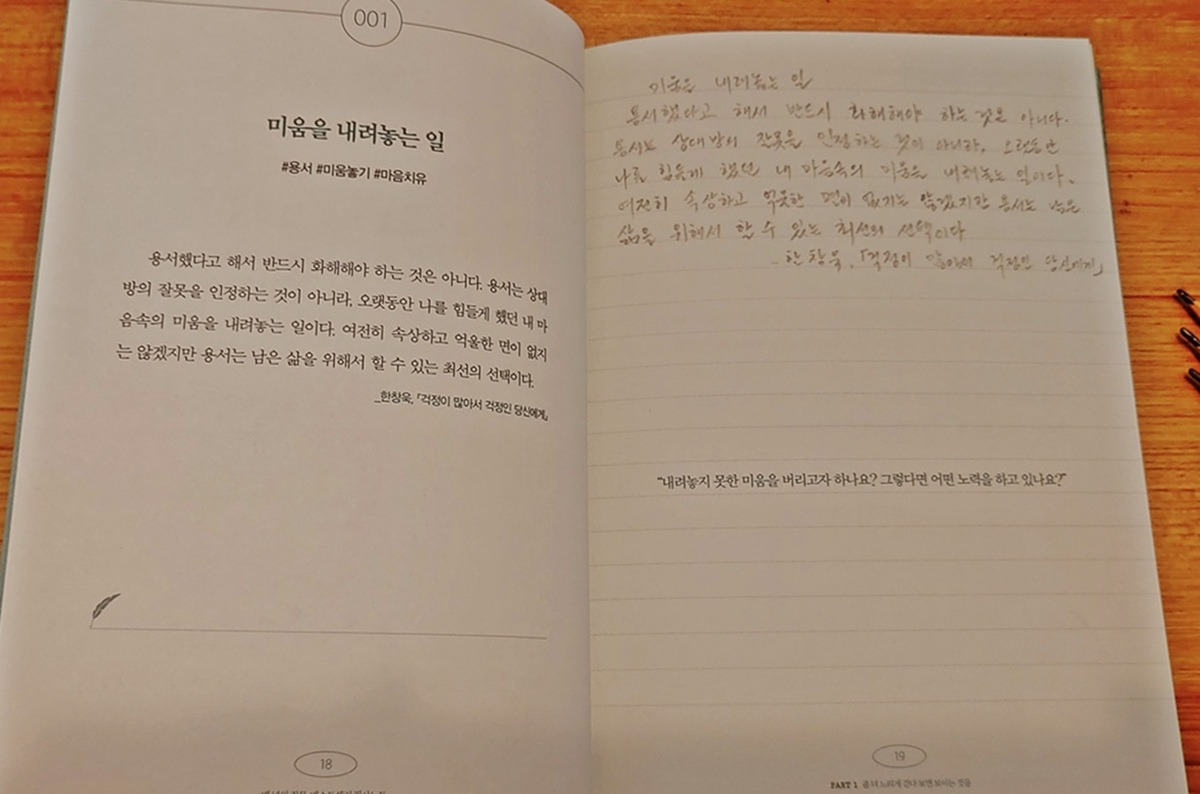 001
미움을 내려놓는 일
#용서 #미움놓기 #마음치유
용서했다고 해서 반드시 화해해야 하는 것은 아니다. 용서는 상대
방의 잘못을 인정하는 것이 아니라, 오랫동안 나를 힘들게 했던 내 마
음속의 미움을 내려놓는 일이다. 여전히 속상하고 억울한 면이 없지
는 않겠지만 용서는 남은 삶을 위해서 할 수 있는 최선의 선택이다.
_한창욱, 「걱정이 많아서 걱정인 당신에게」
18
미움을 내려놓는 일
용서했다고 해서 반드시 화해해야 하는 것은 아니다.
용서는 상대방의 잘못을 인정하는 것이 아니라, 오랫동안
나를 힘들게 했던 내 마음속의 미움을 내려놓는 일이다.
여전히 속상하고 억울한 면이 없지는 않겠지만 용서는 남은
삶을 위해서 할 수 있는 최선의 선택이다
_한창욱, 「걱정이 많아서 걱정인 당신에게」
"내려놓지 못한 미움을 버리고자 하나요? 그렇다면 어떤 노력을 하고 있나요?"
19
PART 1 좀 더 느리게 걷다 보면 보이는 것들